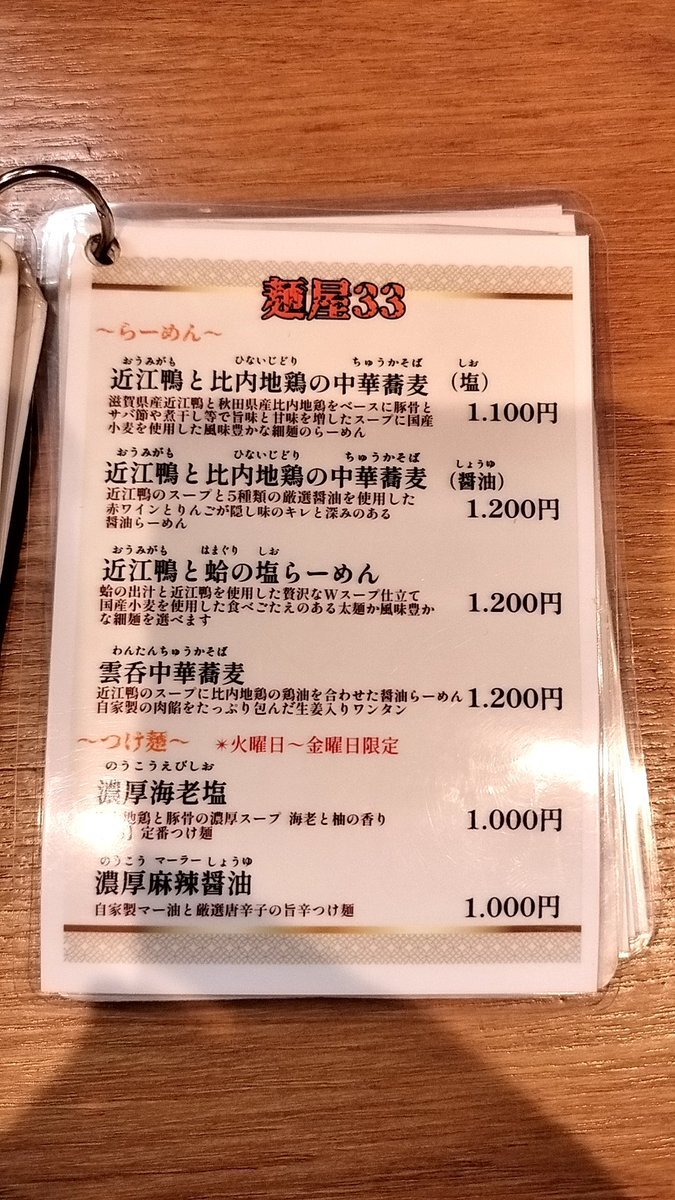 麺屋33
～らーめん～
おうみがも ひないじどり ちゅうかそば しお
近江鴨と比内地鶏の中華蕎麦 (塩)
滋賀県産近江鴨と秋田県産比内地鶏をベースに豚骨と
サバ節や煮干し等で旨味と甘味を増したスープに国産
小麦を使用した風味豊かな細麺のらーめん
1.100円
おうみがも ひないじどり ちゅうかそば しょうゆ
近江鴨と比内地鶏の中華蕎麦 (醤油)
近江鴨のスープと5種類の厳選醤油を使用した
赤ワインとりんごが隠し味のキレと深みのある
醤油らーめん
1.200円
おうみがも はまぐり しお
近江鴨と蛤の塩らーめん
蛤の出汁と近江鴨を使用した贅沢なWスープ仕立て
国産小麦を使用した食べごたえのある太麺か風味豊か
な細麺を選べます
1.200円
わんたんちゅうかそば
雲呑中華蕎麦
近江鴨のスープに比内地鶏の鶏油を合わせた醤油らーめん
自家製の肉餡をたっぷり包んだ生姜入りワンタン
1.200円
～つけ麺～ ✴火曜日～金曜日限定
のうこうえびしお
濃厚海老塩
地鶏と豚骨の濃厚スープ 海老と柚の香り
定番つけ麺
1.000円
のうこう マーラー しょうゆ
濃厚麻辣醤油
自家製マー油と厳選唐辛子の旨辛つけ麺
1.000円